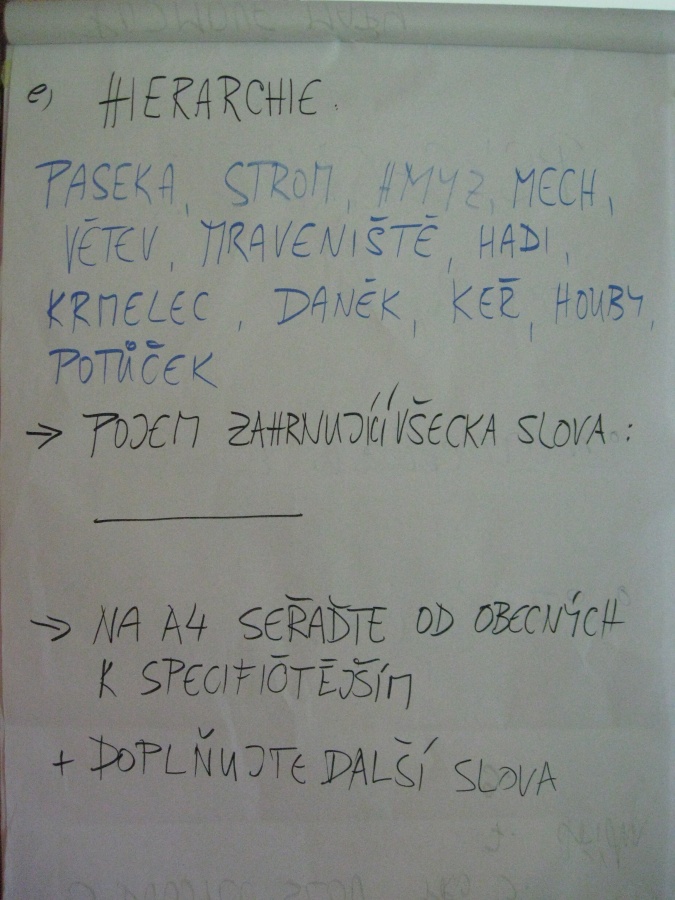 e) HIERARCHIE.
PASEKA, STROM, HMYZ, MECH,
VĚTEV, MRAVENIŠTĚ, HADI,
KRMELEC, DANĚK, KEŘ, HOUBY,
POTŮČEK
→ POJEM ZAHRNUJÍCÍ VŠECKA SLOVA:
→ NA A4 SEŘAĎTE OD OBECNÝCH
K SPECIFIČTĚJŠÍM
+ DOPLŇUJTE DALŠÍ SLOVA